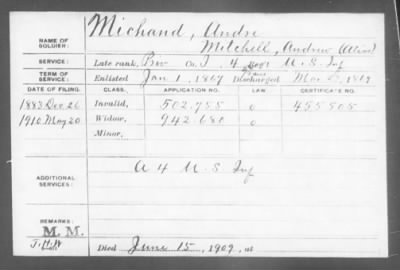 NAME OF SOLDIER: Michand, Andre
Mitchell, Andrew (Alias)
SERVICE: Late rank, Priv Co. I, 4 Reg't U.S. Inf
TERM OF SERVICE: Enlisted Jan 1, 1867 Discharged Mar , 1869
DATE OF FILING. CLASS. APPLICATION NO. LAW. CERTIFICATE NO.
1883 Dec 26 Invalid, 502.755 0 455505
1910 May 20 Widow, 942680 0
Minor,
ADDITIONAL SERVICES: A 4 U.S Inf
REMARKS:
M. M.
Died June 15, 1909, at